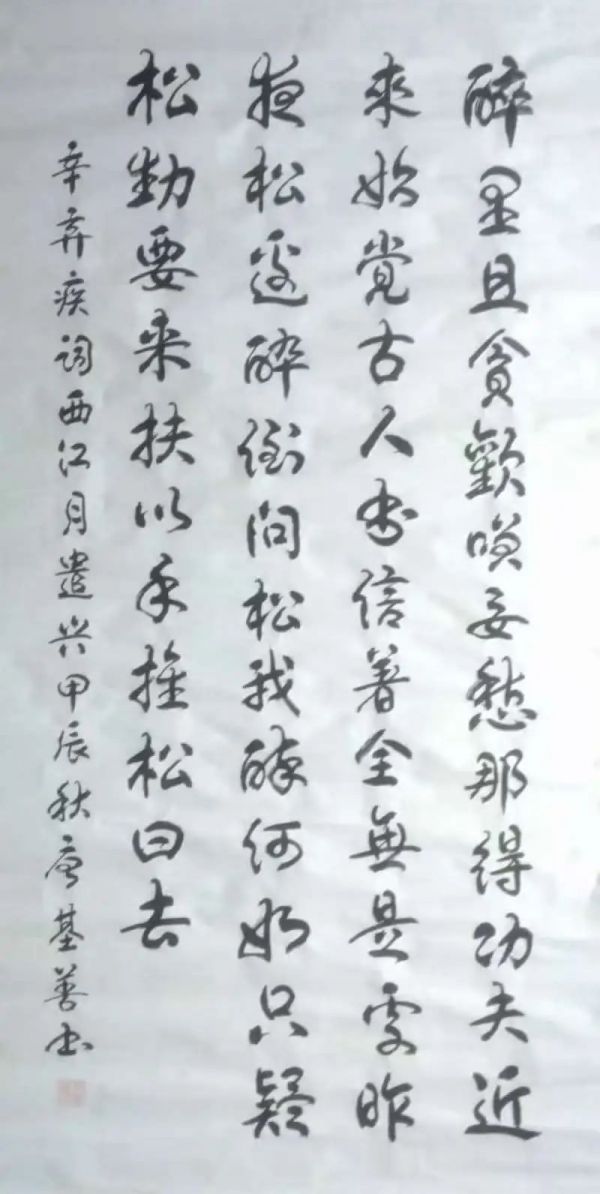 醉里且貪歡咲要愁那得功夫近
來始覚古人书信著全無是處昨
夜松边醉倒问松我醉何如只疑
松動要来扶以手推松曰去
辛弃疾词西江月遣兴甲辰秋唐基善书